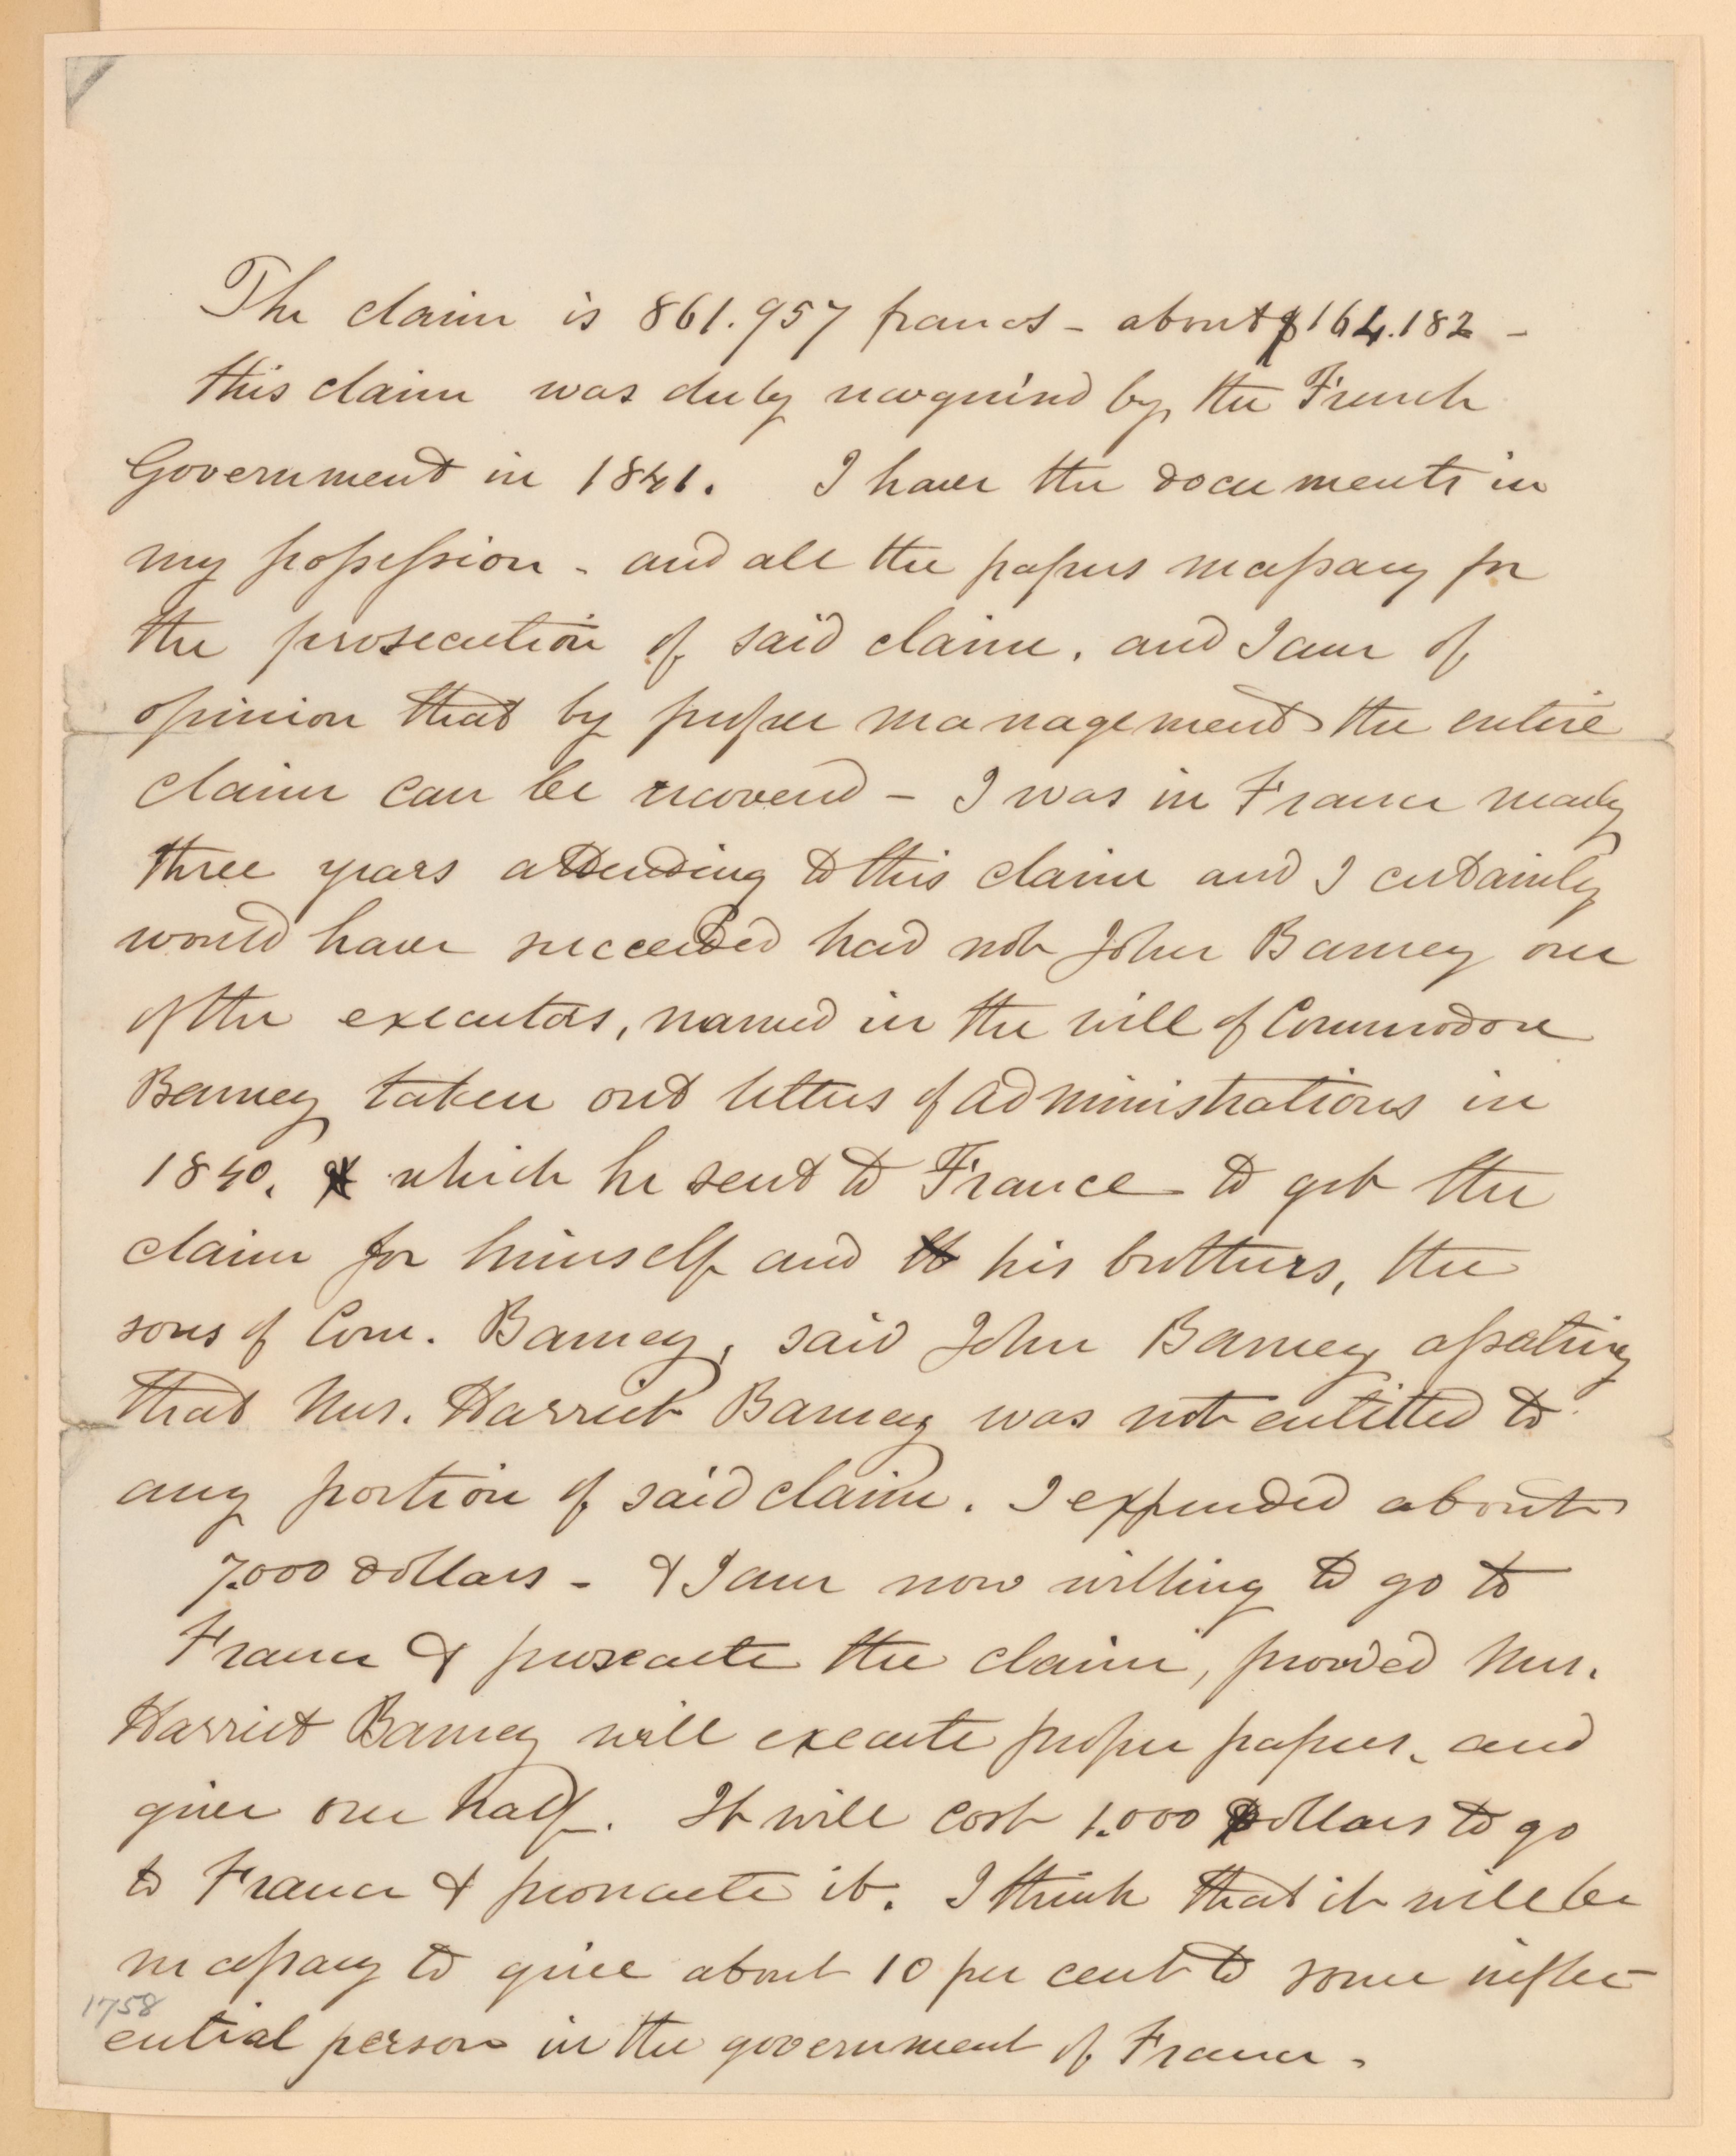 The claim is 861.957 francs - about $164.182 -
this claim was duly recognized by the French
Government in 1841. I have the documents in
my possession - and all the papers necessary for
the prosecution of said claim, and I am of
opinion that by proper management the entire
claim can be recovered - I was in France nearly
three years attending to this claim and I certainly
would have succeeded had not John Barney one
of the executors, named in the will of Commodore
Barney taken out letters of administrations in
1840. which he sent to France to get the
claim for himself and his brothers, the
sons of Com. Barney, said John Barney asserting
that Mrs. Harriet Barney was not entitled to
any portion of said claim. I expended about
7.000 dollars - & I am now willing to go to
France & prosecute the claim, provided Mrs.
Harriet Barney will execute proper papers, and
give one half. It will cost 1.000 dollars to go
to France & prosecute it. I think that it will be
necessary to give about 10 per cent to some influ-
1758
ential person in the government of France.